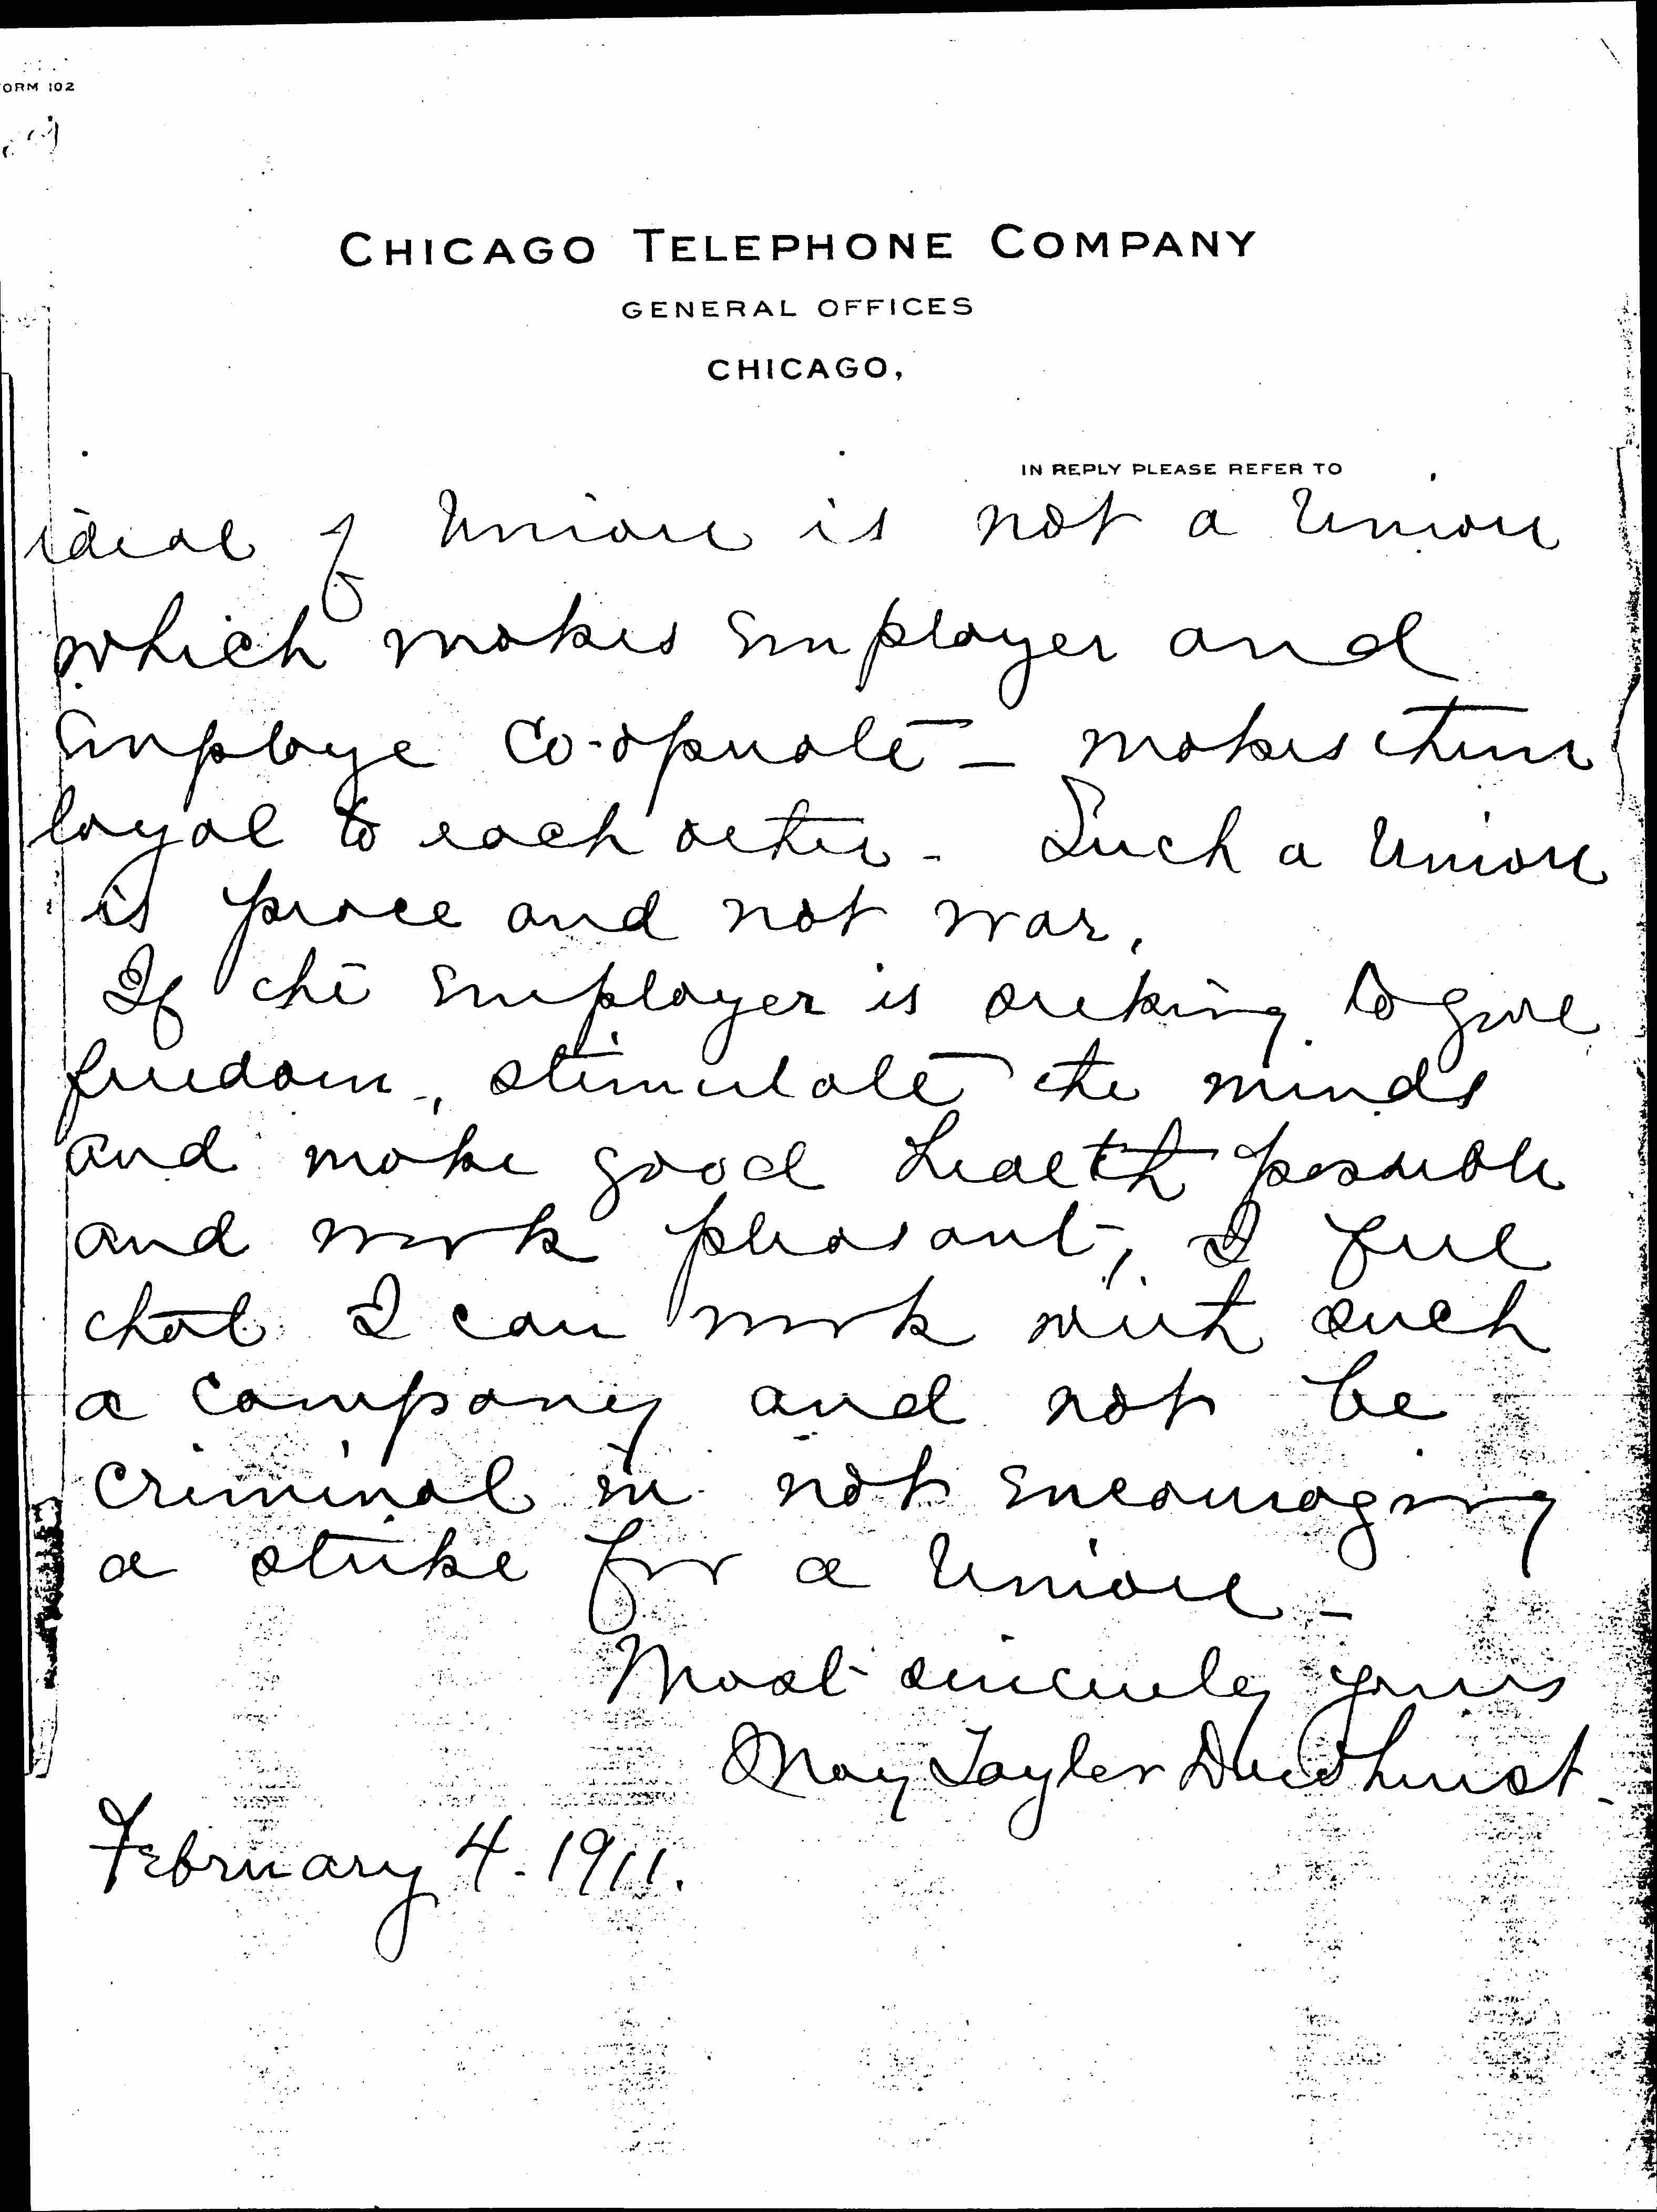 ORM 102
CHICAGO TELEPHONE COMPANY
GENERAL OFFICES
CHICAGO,
IN REPLY PLEASE REFER TO
ideal of Union is not a Union
which makes Employer and
Employe Co-operate - makes them
loyal to each other - Such a Union
is peace and not war.
If the Employer is seeking to give
freedom, stimulate the minds
and make good health possible
and work pleasant, I feel
that I can work with such
a Company and not be
Criminal in not Encouraging
a strike for a Union -
Most sincerely yours
May Tayler Dewhurst.
February 4. 1911.